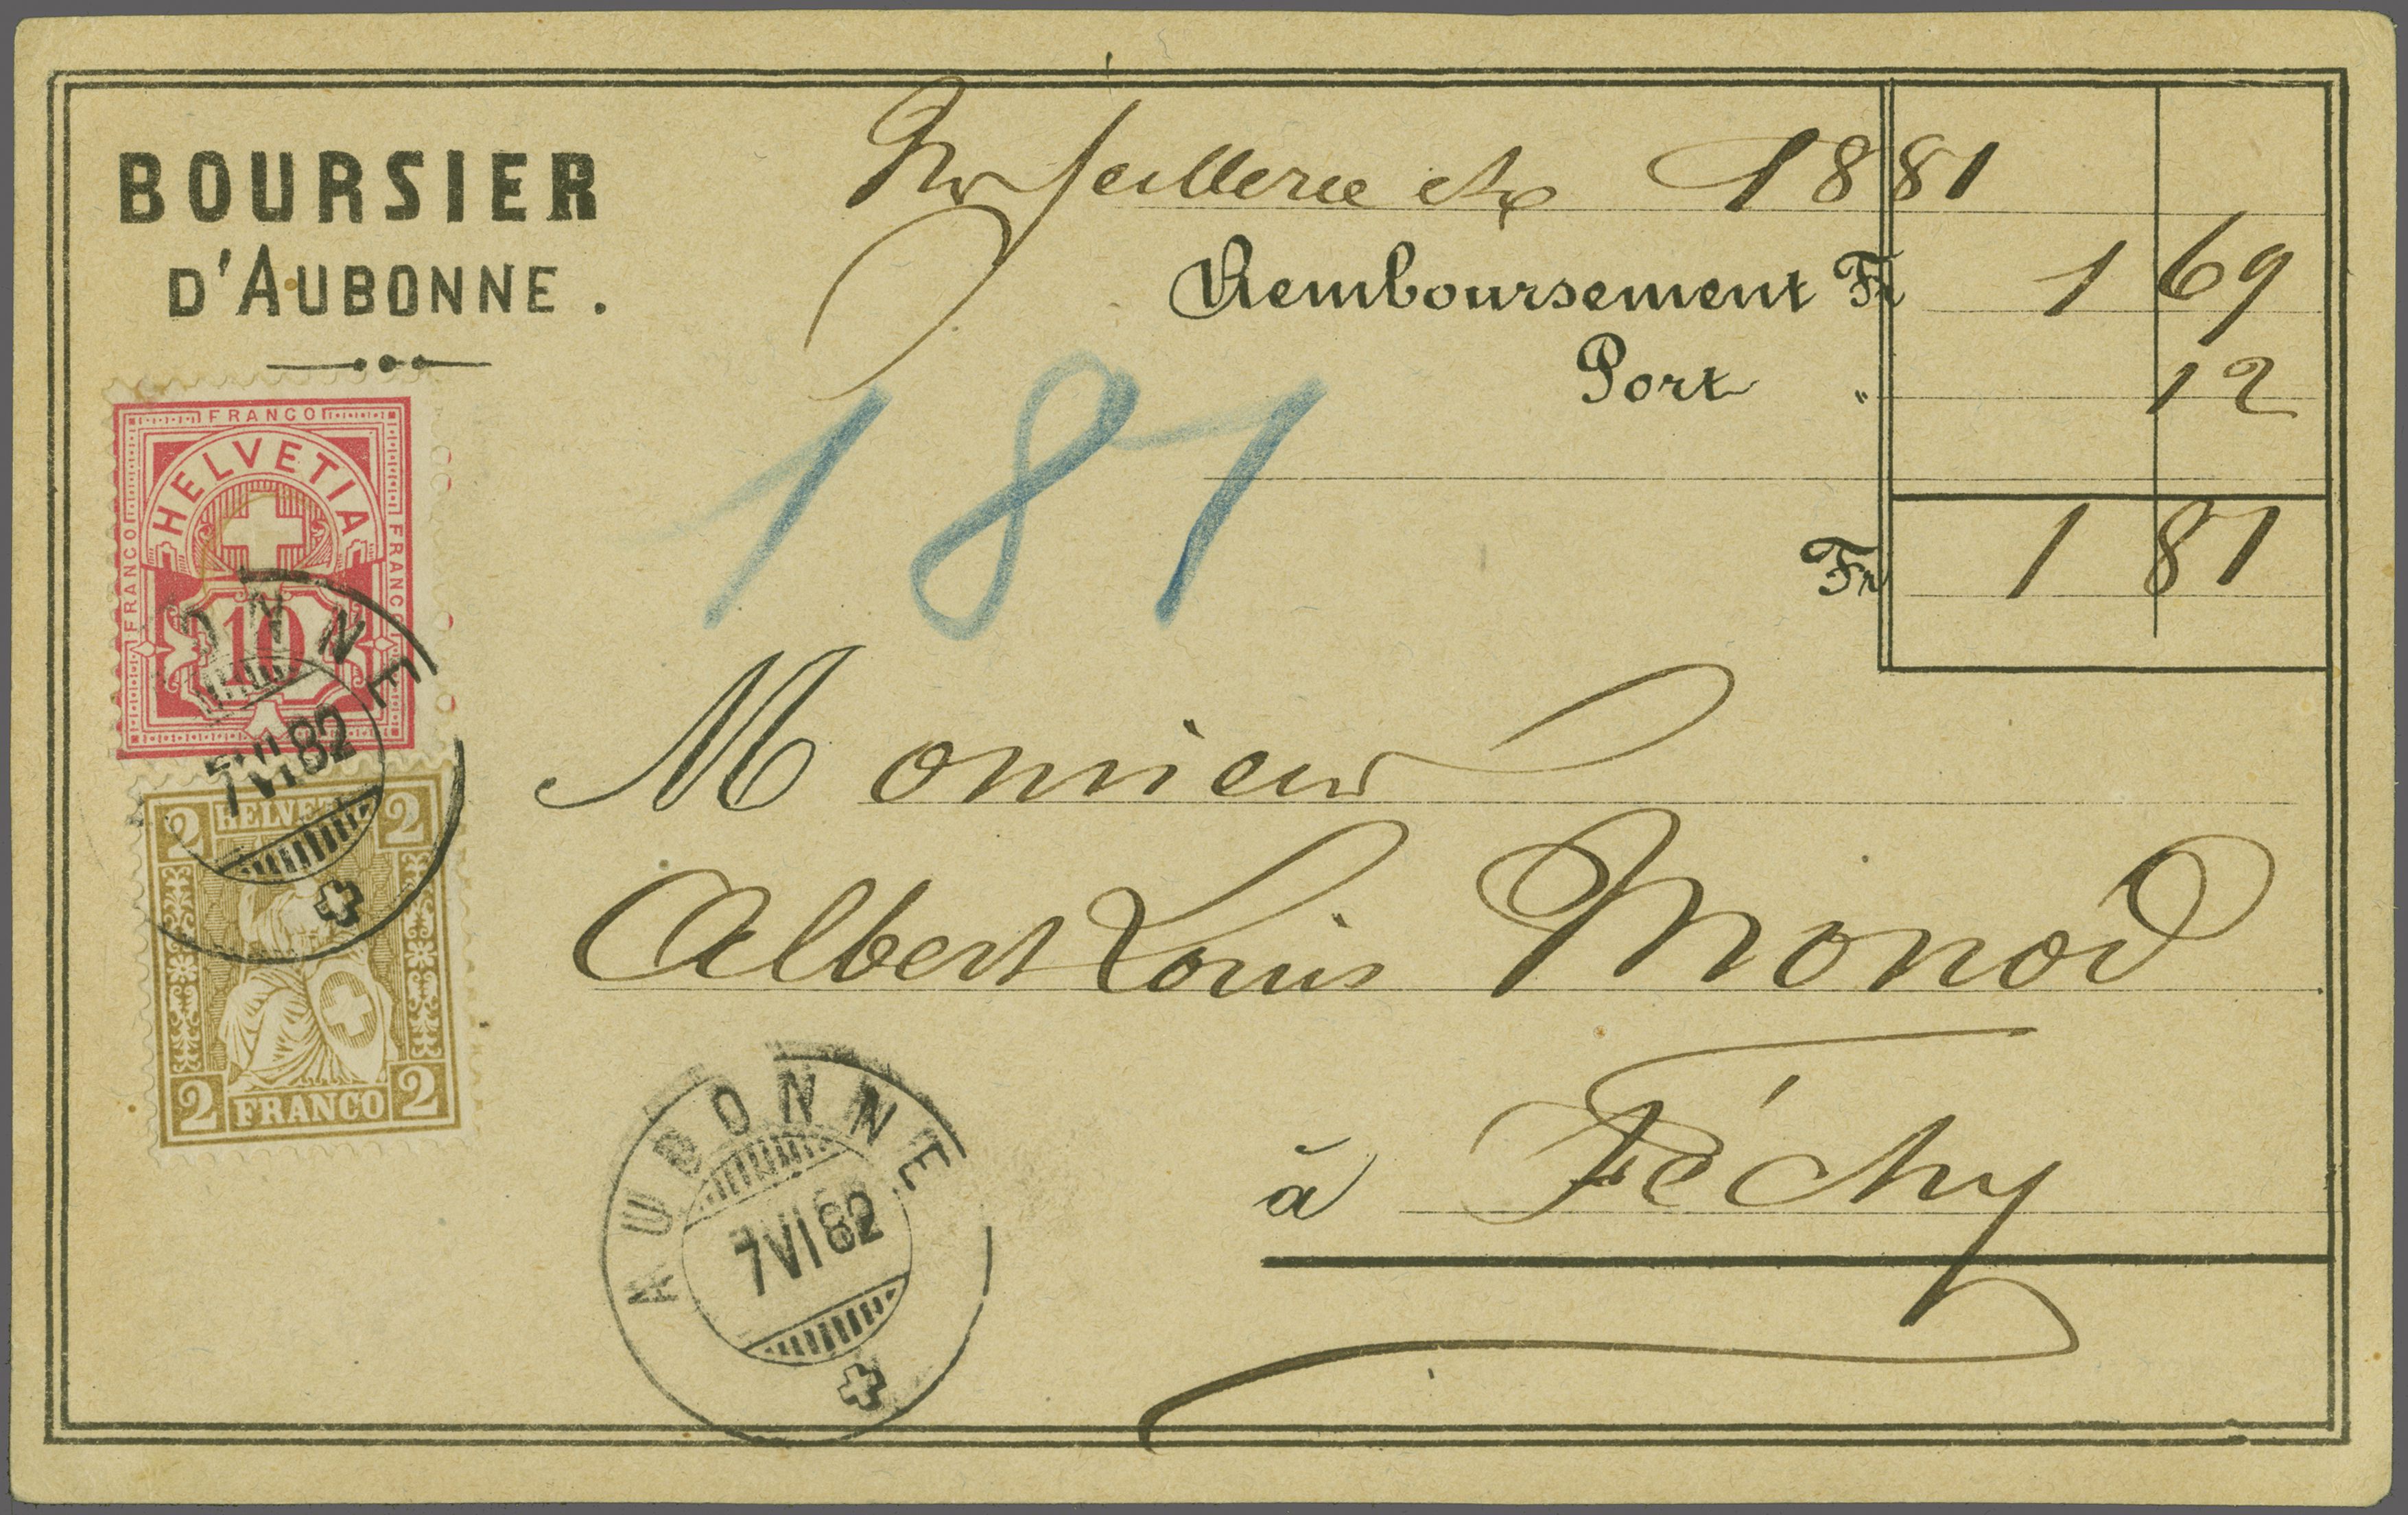 BOURSIER
D'AUBONNE.
1881
Remboursement Fr 1 69
Port " 12
181
Fr 1 81
FRANCO
HELVETIA
FRANCO
FRANCO
10
AUBONNE
7 VI 82
2 HELVETIA 2
2 FRANCO 2
Monsieur
Albert Louis Monod
à Féchy
AUBONNE
7 VI 82